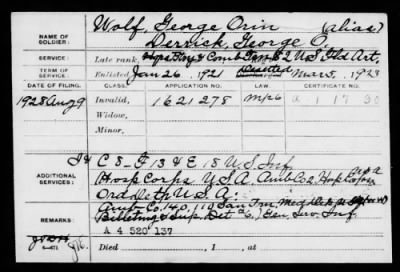 NAME OF SOLDIER: Wolf, George Orin (alias)
Derrick, George O.
SERVICE: Late rank, & Comb Trn # 2 U S Fld Art,
TERM OF SERVICE: Enlisted Jan 26, 1921 Mar 5, 1923
DATE OF FILING. CLASS. APPLICATION NO. LAW. CERTIFICATE NO.
1928 Aug 9 Invalid, 1621278
Widow,
Minor,
ADDITIONAL SERVICES: C 8 - F 13 & E 18 U.S. Inf
Hosp Corps U.S.A. Amb Co 2, Hosp Corps
Ord Det U.S.A;
Amb Co. 140, 110 San Trn, Med Dept
REMARKS: Billeting & Sup. Det Gen, Serv. Inf
A 4 520 137
Died , 1 , at